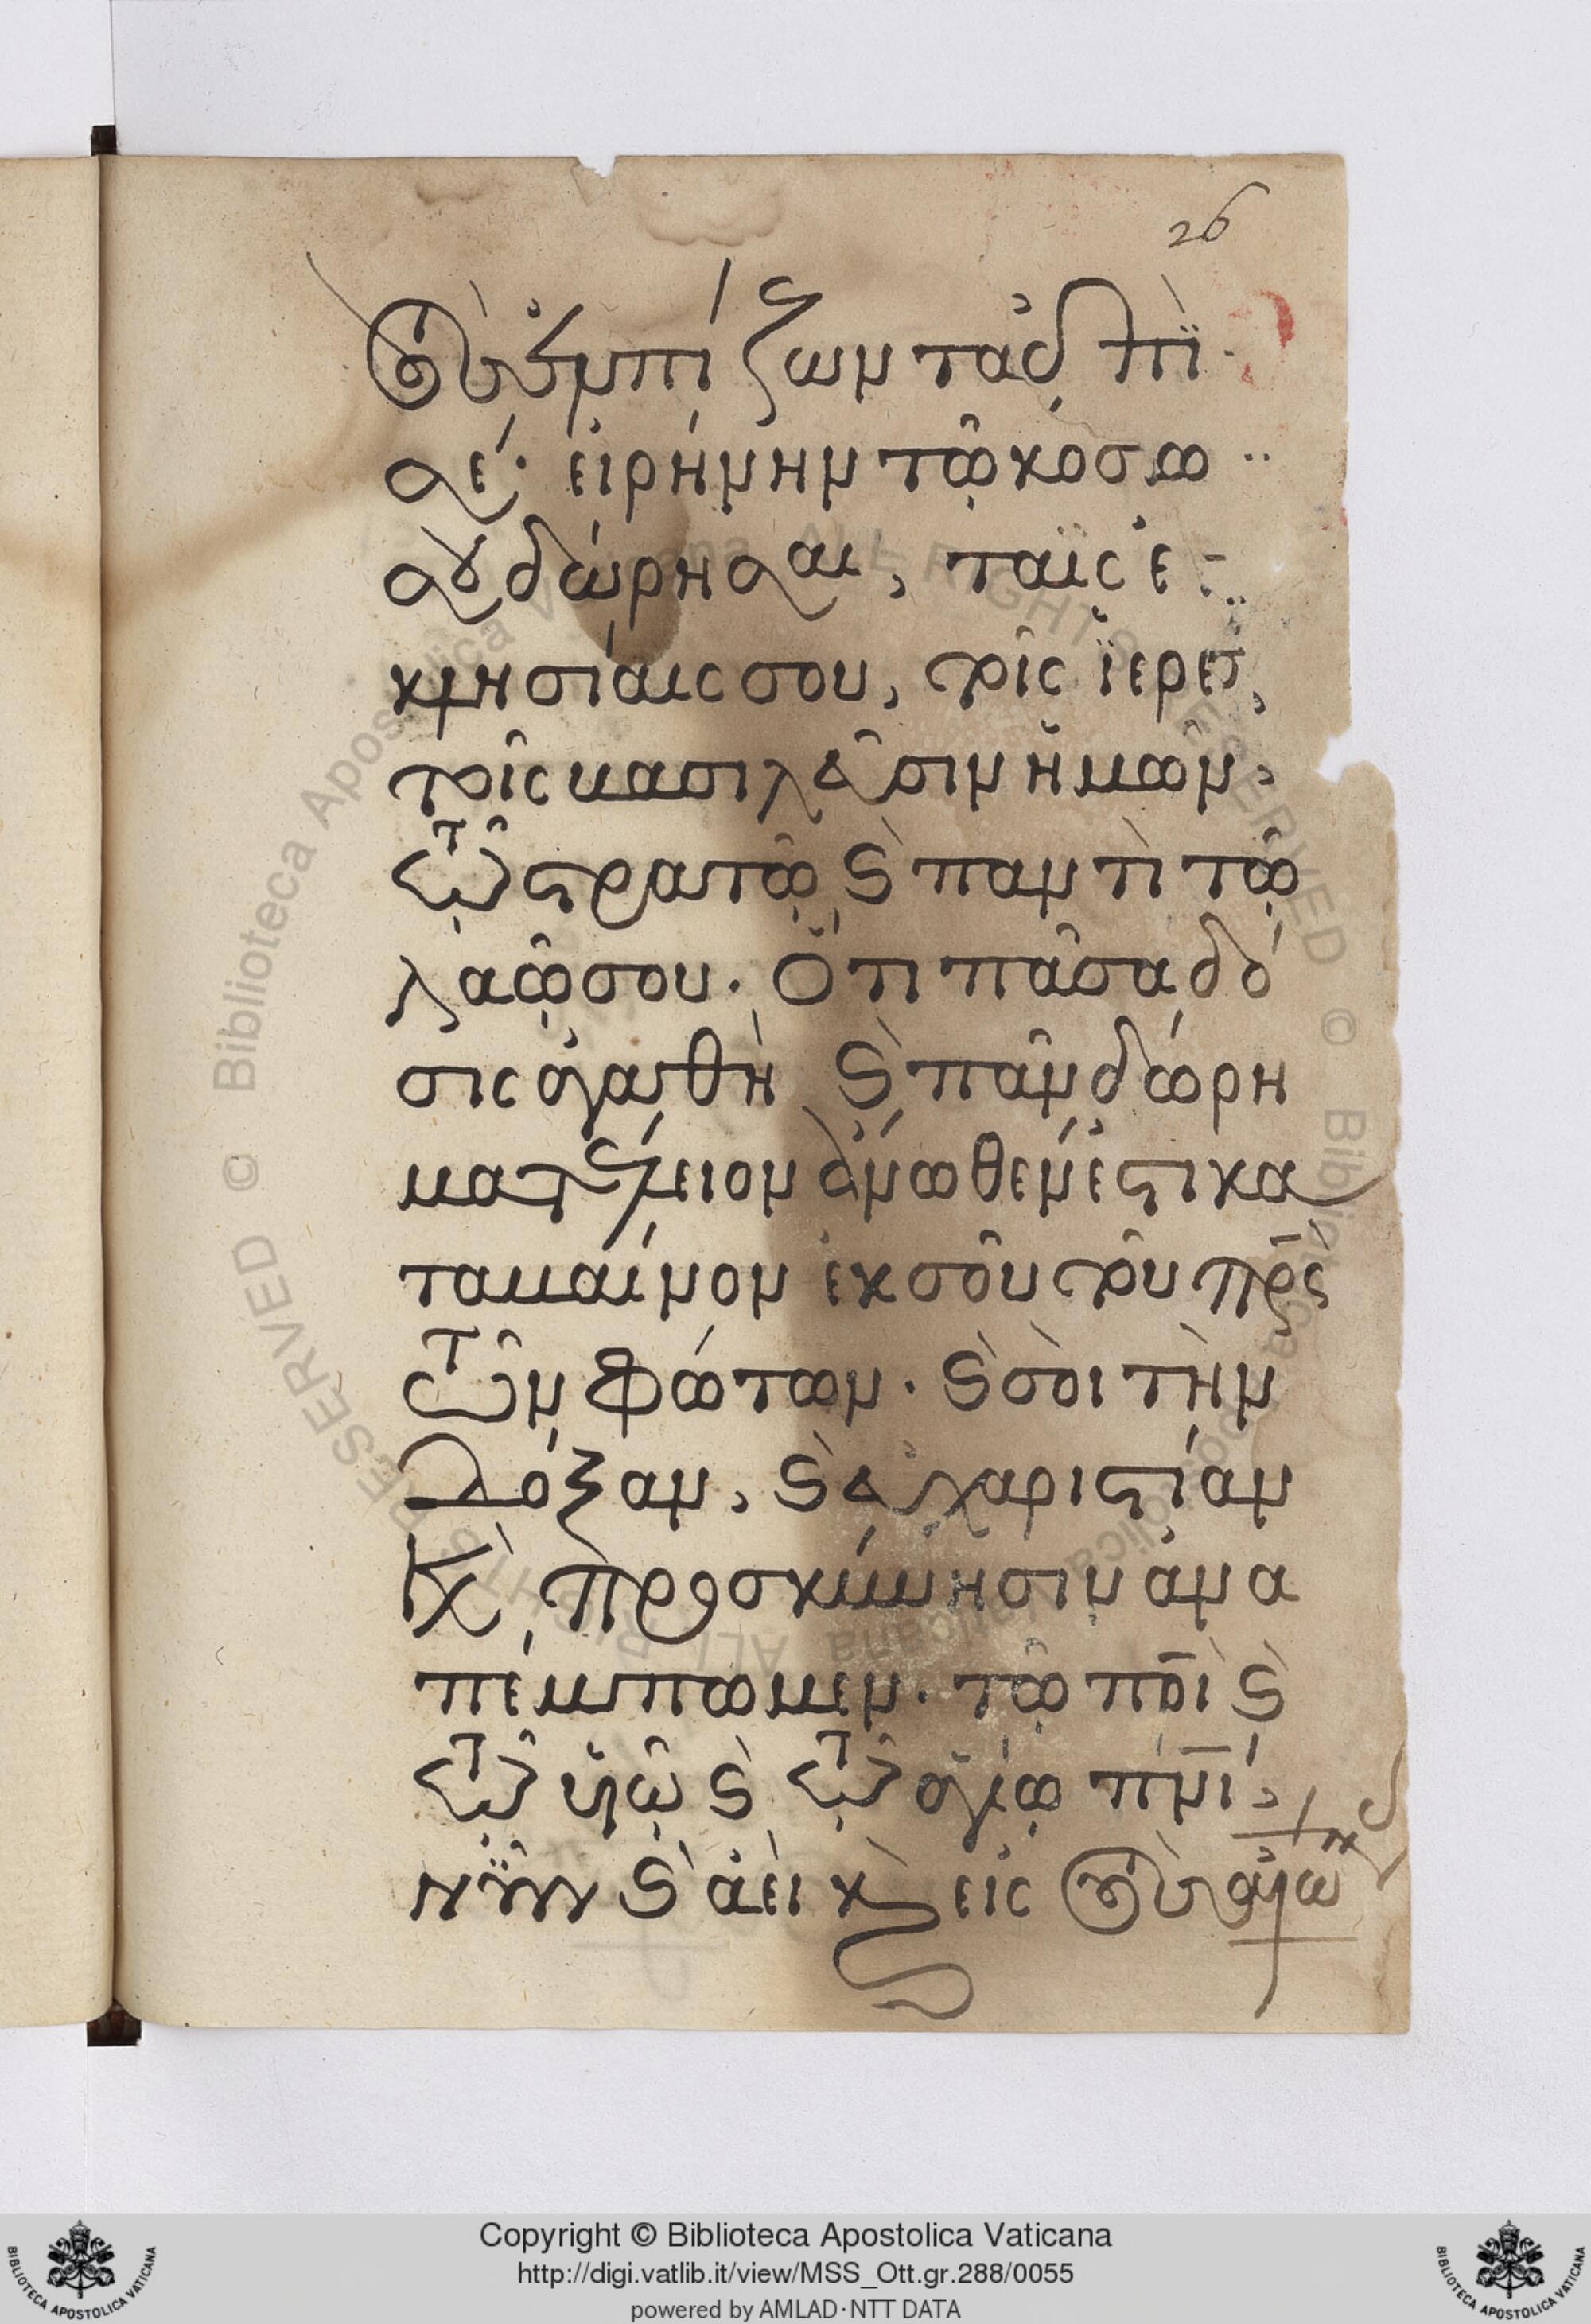 26
τοὺς ἐλπίζοντας ἐπὶ
σέ· εἰρήνην τῷ κόσμω
σου δώρησαι, ταῖς ἐ
κκλησίαις σου, τοῖς ἱερεῦσι,
τοῖς βασιλεῦσιν ἡμῶν,
τῷ στρατῷ, καὶ παντὶ τῷ
λαῷ σου. Ὅτι πᾶσα δό
σις ἀγαθὴ καὶ πᾶν δώρη
μα τέλειον ἄνωθέν ἐστι κα
ταβαῖνον ἐκ σοῦ τοῦ πρς
τῶν φώτων. καὶ σοὶ τὴν
δόξαν, καὶ εὐχαριστίαν
καὶ προσκύνησιν ἀνα
πέμπωμεν. τῷ πρι καὶ
τῷ υἱῷ καὶ τῷ ἁγίῳ πνι,
νῦν καὶ ἀεὶ καὶ εἰς τοὺς αἰῶ
Copyright © Biblioteca Apostolica Vaticana
http://digi.vatlib.it/view/MSS_Ott.gr.288/0055
powered by AMLAD·NTT DATA